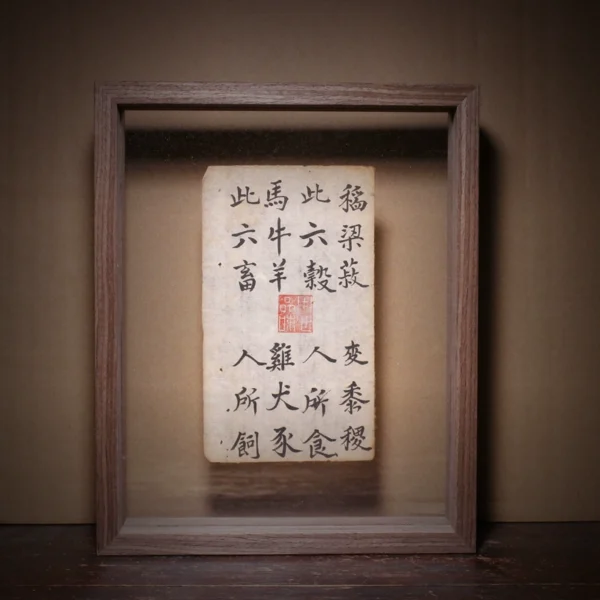 稻梁菽 麥黍稷
此六穀 人所食
馬牛羊 雞犬豕
此六畜 人所飼